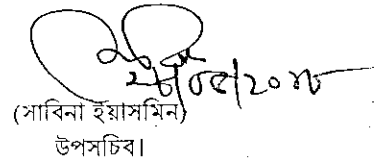 (সাবিনা ইয়াসমিন)
উপসচিব।